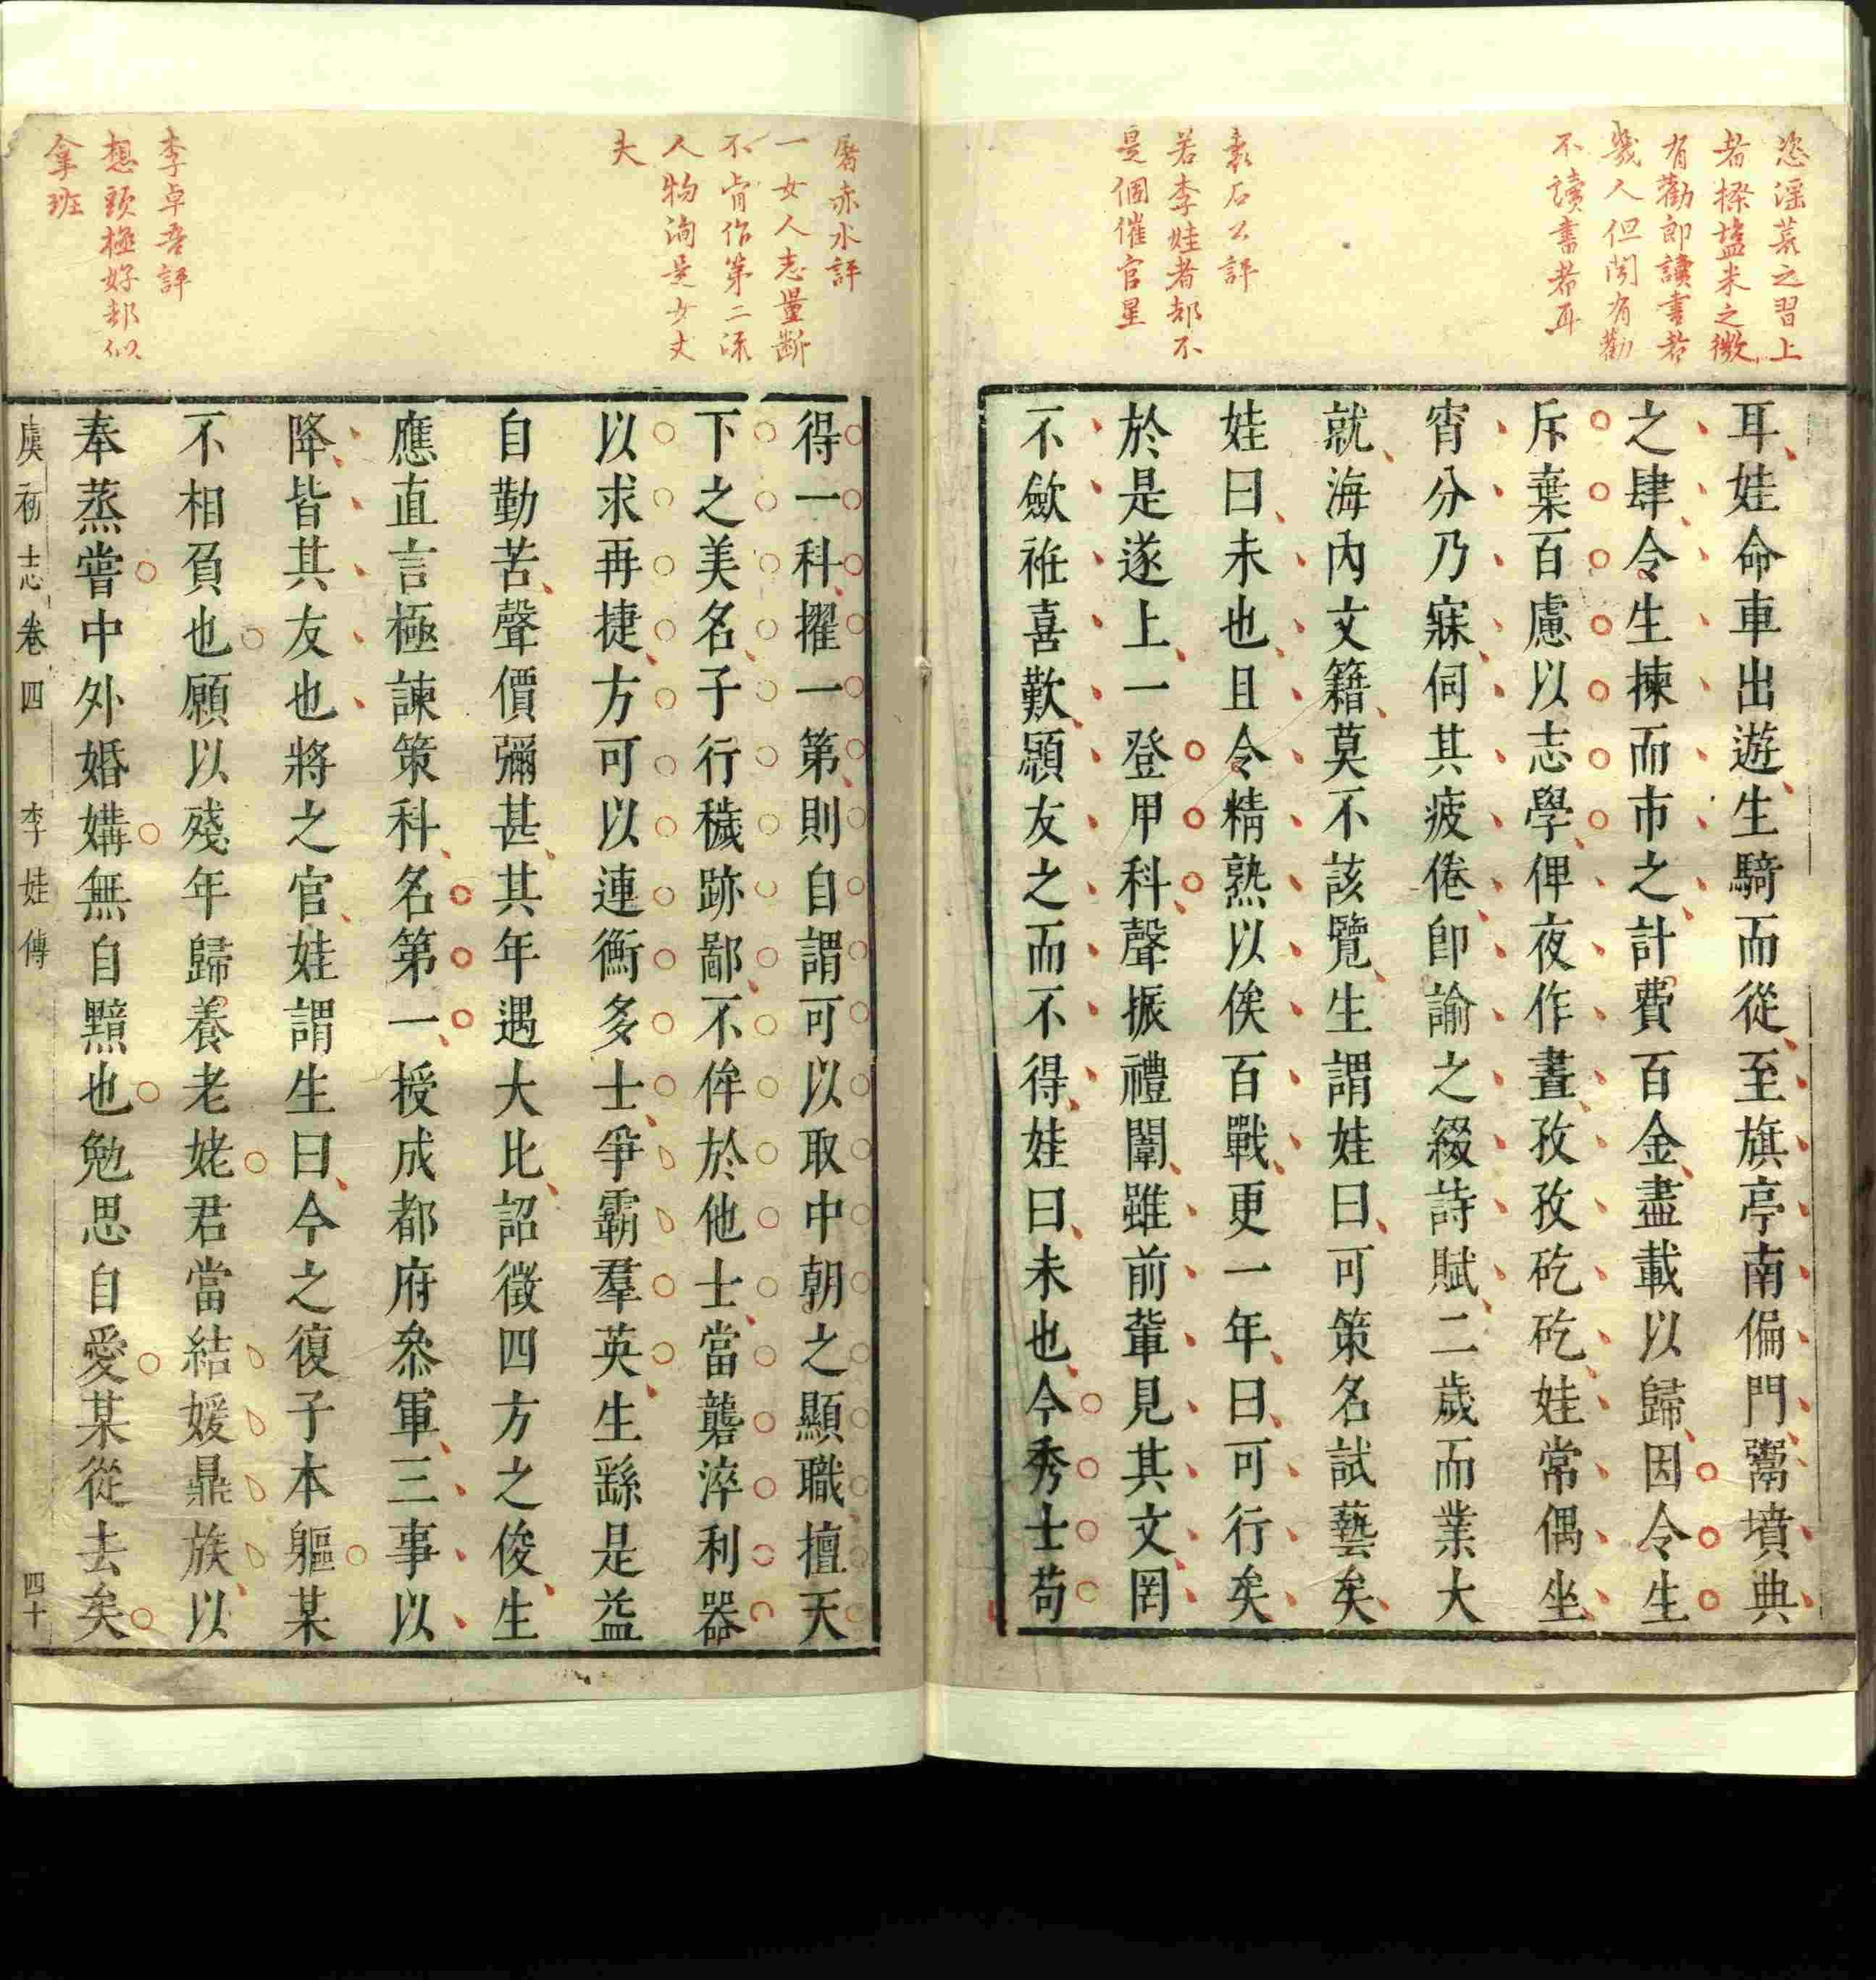 恣淫蕩之習上
者操鹽米之微
有勸即讀書者
幾人但聞有勸
不讀書者耳
袁石公評
若李娃者都不
是個催官星
耳娃命車出遊生騎而從至旗亭南偏門鬻墳典
之肆令生揀而市之計費百金盡載以歸因令生
斥棄百慮以志學俾夜作晝孜孜矻矻娃常偶坐
宵分乃寐伺其疲倦即諭之綴詩賦二歲而業大
就海內文籍莫不該覽生謂娃曰可策名試藝矣
娃曰未也且令精熟以俟百戰更一年曰可行矣
於是遂上一登甲科聲振禮闈雖前輩見其文罔
不歛袵喜歎願友之而不得娃曰未也今秀士苟
屠赤水評
一女人志量斷
不肯作第二流
人物洵是女丈
夫
李卓吾評
想頭極好却似
拿班
得一科擢一第則自謂可以取中朝之顯職擅天
下之美名子行穢跡鄙不侔於他士當礱淬利器
以求再捷方可以連衡多士爭霸羣英生繇是益
自勤苦聲價彌甚其年遇大比詔徵四方之俊生
應直言極諫策科名第一授成都府叅軍三事以
降皆其友也將之官娃謂生曰今之復子本軀某
不相負也願以殘年歸養老姥君當結媛鼎族以
奉蒸嘗中外婚媾無自黷也勉思自愛某從去矣
虞初志卷四 李娃傳 四十